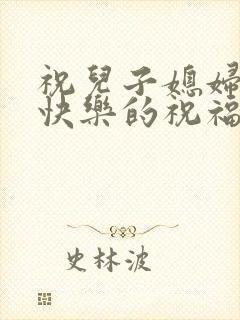 祝兒子媳婦
快樂的祝福
史林波